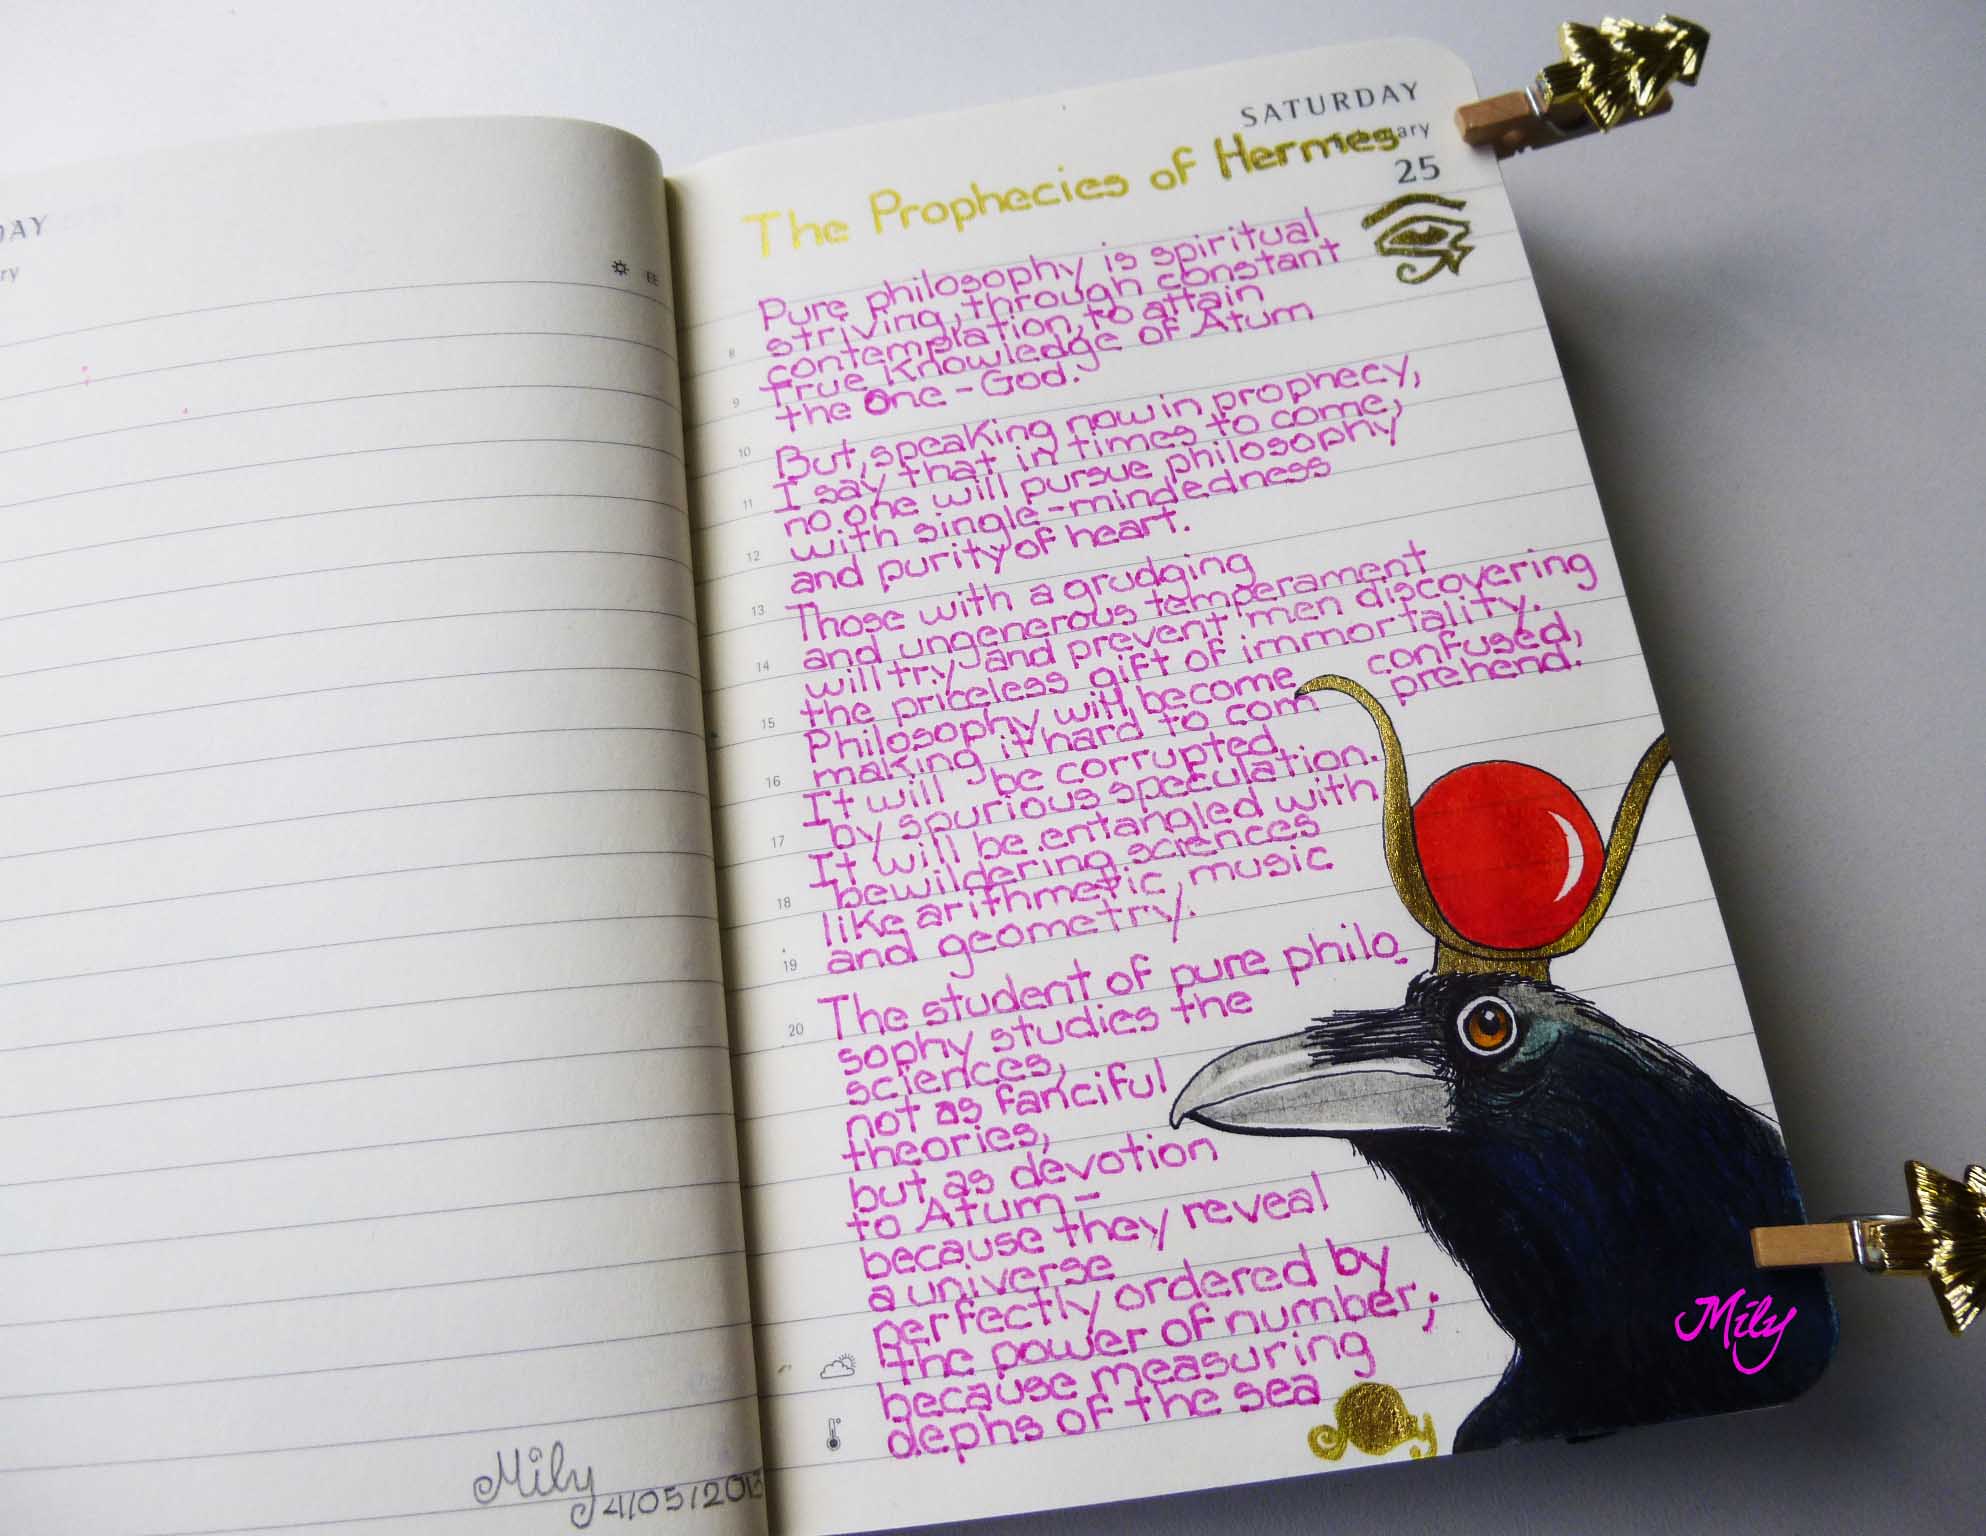 DAY
ry
SATURDAY
ary
25
The Prophecies of Hermes
Pure philosophy is spiritual
striving, through constant
contemplation, to attain
true knowledge of Atum
the One - God.
But, speaking now in prophecy,
I say that in times to come,
no one will pursue philosophy
with single-mindedness
and purity of heart.
Those with a grudging
and ungenerous temperament
will try and prevent men discovering
the priceless gift of immortality.
Philosophy will become confused,
making it hard to com prehend.
It will be corrupted
by spurious speculation.
It will be entangled with
bewildering sciences
like arithmetic, music
and geometry.
The student of pure philo
sophy studies the
sciences,
not as fanciful
theories,
but as devotion
to Atum -
because they reveal
a universe
perfectly ordered by
the power of number;
because measuring
dephs of the sea
8
9
10
11
12
13
14
15
16
17
18
19
20
Mily
Mily
4/05/201